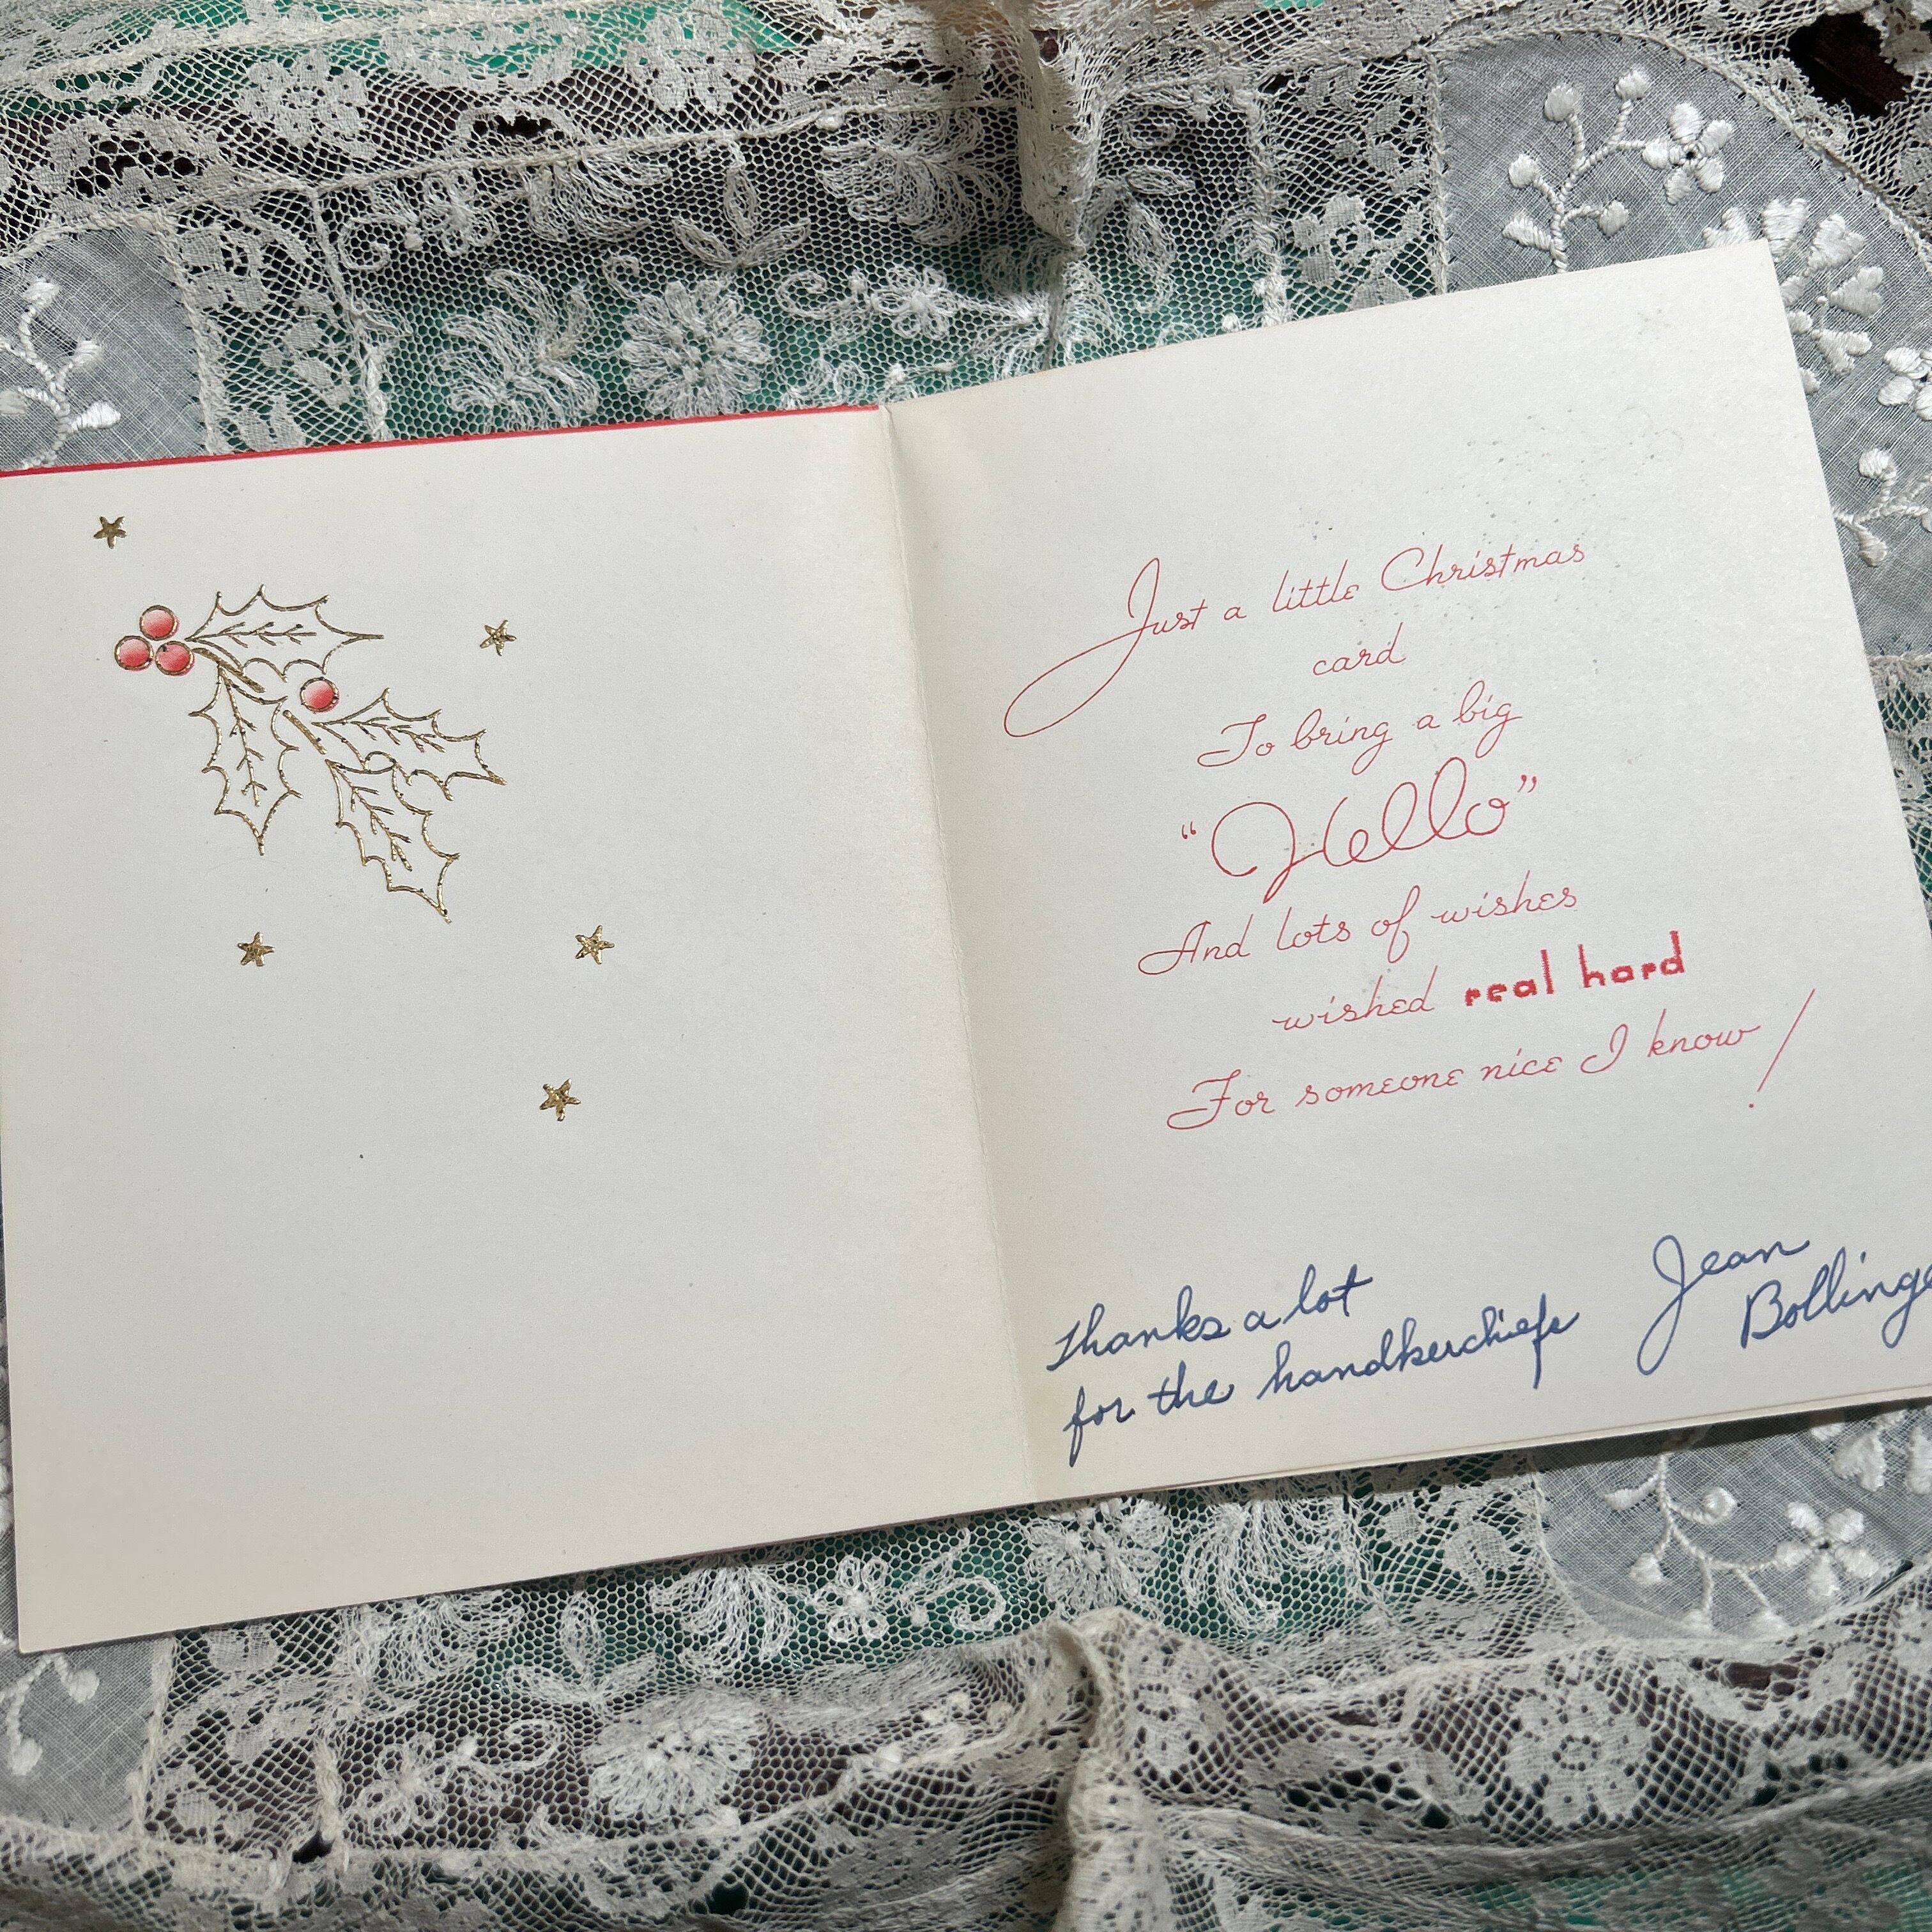 Just a little Christmas
card
To bring a big
“Hello”
And lots of wishes
wished real hard
For someone nice I know!
Thanks a lot
for the handkerchiefs
Jean